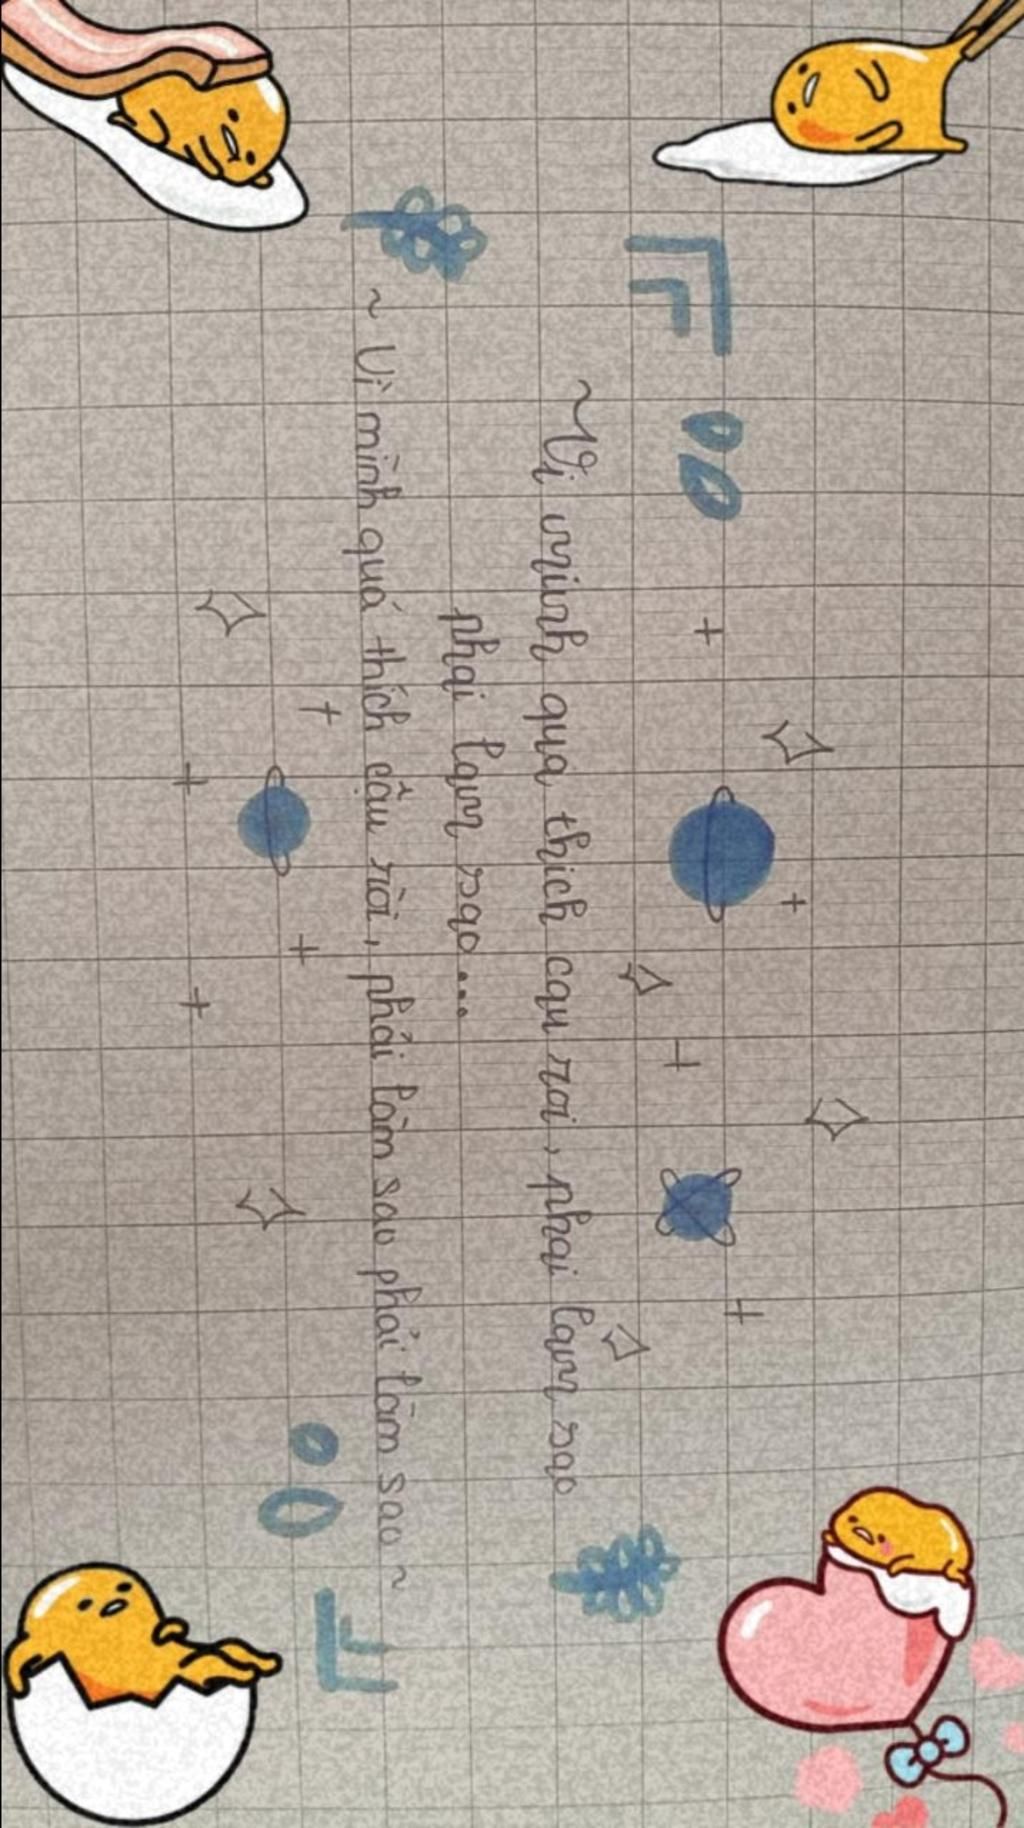 ~ Vi minh qua thich cau roi, phai lam sao
phai lam sao...
~ Vì mình quá thích cậu rồi, phải làm sao phải làm sao ~